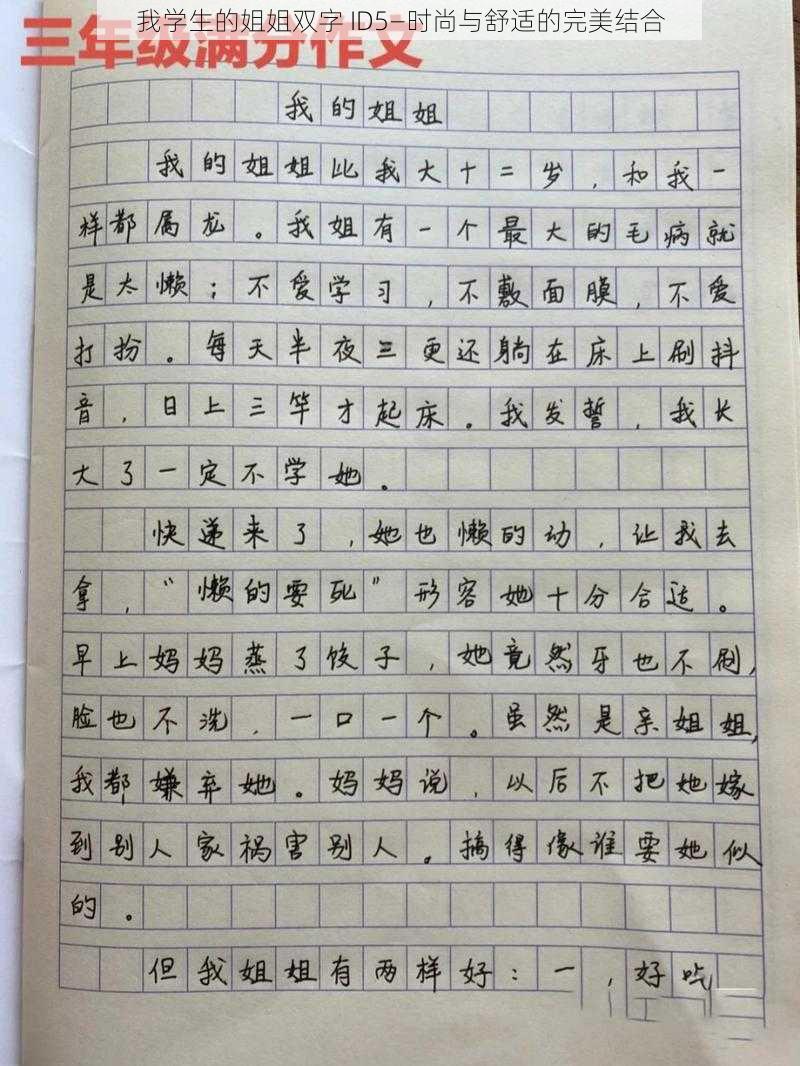 我学生的姐姐双字 ID5—时尚与舒适的完美结合
三年级满分作文
我的姐姐
我的姐姐比我大十二岁，和我一
样都属龙。我姐有一个最大的毛病就
是太懒；不爱学习，不敷面膜，不爱
打扮。每天半夜三更还躺在床上刷抖
音，日上三竿才起床。我发誓，我长
大了一定不学她。
快递来了，她也懒的动，让我去
拿，“懒的要死”形容她十分合适。
早上妈妈蒸了饺子，她竟然牙也不刷，
脸也不洗，一口一个。虽然是亲姐姐，
我都嫌弃她。妈妈说，以后不把她嫁
到别人家祸害别人。搞得像谁要她似
的。
但我姐姐有两样好：一，好吃